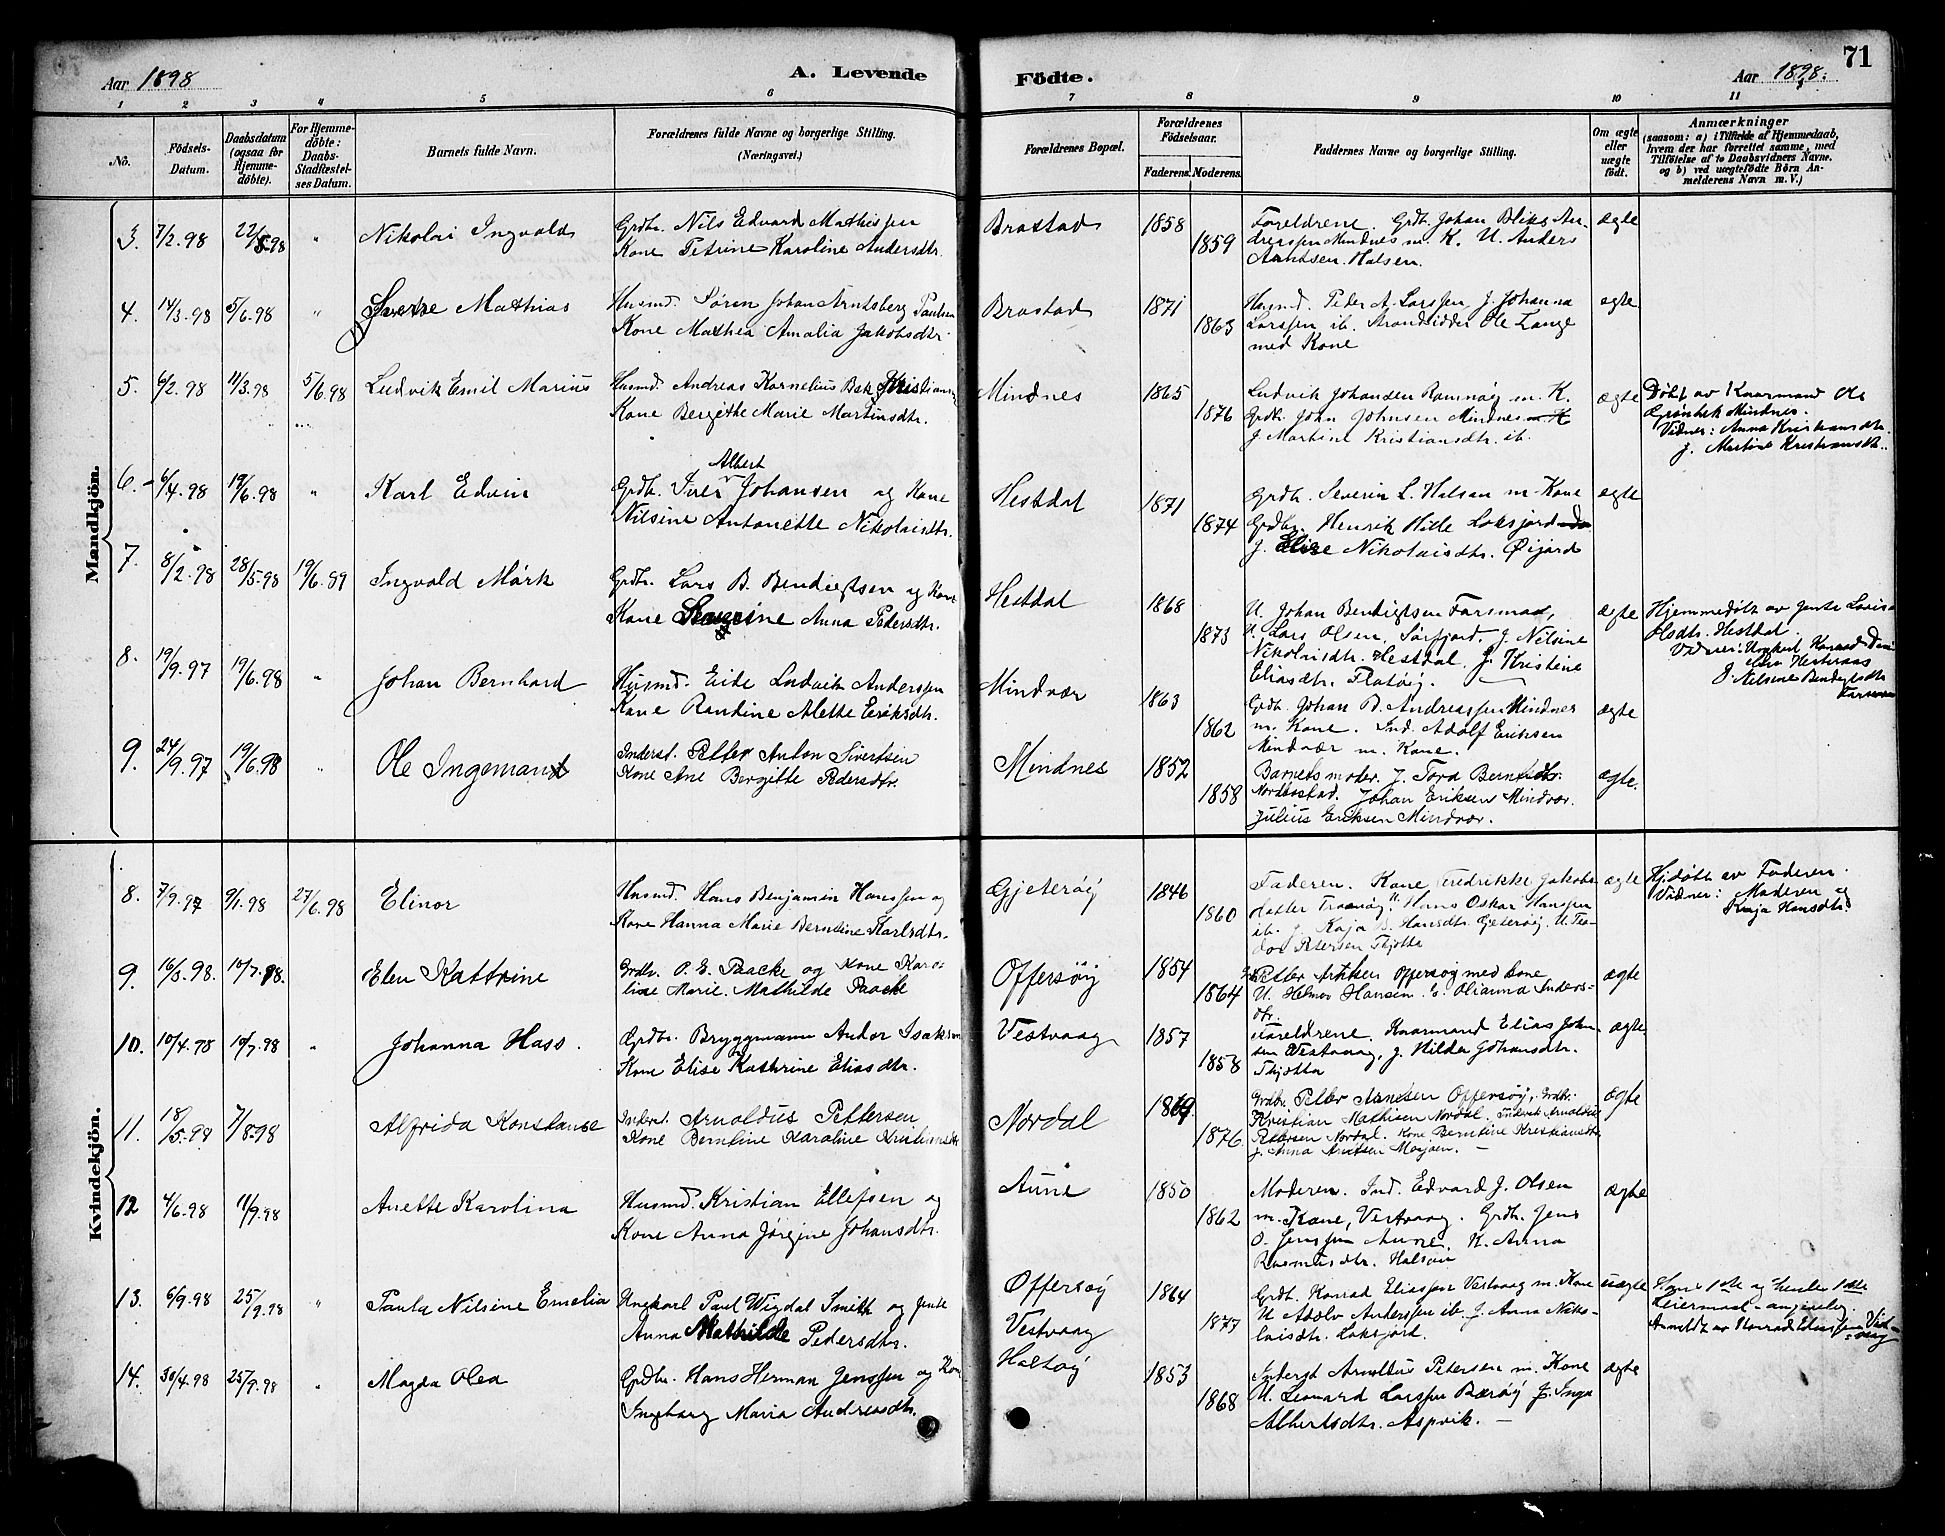 Aar 1898
A. Levende Födte.
Aar 1898.
71
1 2 3 4 5 6 7 8 9 10 11
No.
Födsels-
Datum.
Daabsdatum
(ogsaa for
Hjemme-
döbte).
For Hjemme-
döbte:
Daabs-
Stadfæstel-
ses Datum.
Barnets fulde Navn.
Forældrenes fulde Navne og borgerlige Stilling.
(Næringsvei.)
Forældrenes Bopæl.
Forældrenes
Födselsaar.
Faderens. Moderens.
Faddernes Navne og borgerlige Stilling.
Om ægte
eller
uægte
födt.
Anmærkninger
(saasom: a) i Tilfælde af Hjemmedaab,
hvem der har forrettet samme, med
Tilföielse af to Daabsvidners Navne.
og b) ved uægtefödte Börn An-
melderens Navn m.V.)
Mandkjön.
3. 7/2.98 22/5.98 " Nikolai Ingvald
Grdb. Nils Edvard Mathissen
Kone Petrine Karoline Andersdtr.
Brastad 1858 1859
Foreldrene. Grdb. Johan Bliks An-
derssen Mindnes m. K. U. Anders
Arntsen Halsen.
ægte
4. 14/3.98 5/6.98 " Sverre Mathias
Husmd. Søren Johan Arntsberg Paulsen
Kone Mathea Amalia Jakobsdtr.
Brastad 1871 1863
Husmd. Peder A. Larssen J. Johanna
Larssen ib. Strandsidder Ole Zange
med Kone
ægte
5. 6/2.98 11/3.98 5/6.98 Ludvik Emil Marius
Husmd. Andreas Kornelius Bek Kristiansen
Kone Bergitte Marie Martinsdtr.
Mindnes 1865 1876
Ludvik Johansen Ramnøy m. K.
Grdb. John Johnsen Mindnes m K
J Martine Kristiansdtr. ib.
ægte
Døbt av Kaarmand Ole
Grønbek Mindnes.
Vidner: Anna Kristiansdtr.
J. Martine Kristiansdtr.
6. 6/4.98 19/6.98 " Karl Edvin
Albert
Grdb. Iver Johansen og Kone
Nilsine Antonette Nikolaisdtr.
Hestdal 1871 1874
Grdb. Severin L. Halsan m. Kone
Grdbr. Henrik Hille Loksjord
J. Elise Nikolaisdtr. Øijord
ægte
7. 8/2.98 28/5.98 19/6.99 Ingvald Mørk
Grdb. Lars B. Bendigtsen og Kone
Kone Severine Anna Pedersdtr.
Hestdal 1868 1873
U. Johan Bendigtsen Farsmad,
U. Lars Olsen, Sørfjord, J. Nilsine
Nikolaisdtr. Hestdal. J. Kristine
Eliasdtr. Flatøig.
ægte
Hjemmedøbt av Jente Lovise
Olsdtr. Hestdal.
Vidner: Ungkarl Konrad
J. Nilsine Bendigtsdtr.
8. 19/9.97 19/6.98 " Johan Bernhard
Husmd. Eide Ludvik Anderssen
Kone Randine Alette Eriksdtr.
Mindvær 1863 1862
Grdb. Johan B. Andreassen Mindnes
m. Kone. Ind. Adolf Eriksen
Mindvær m. Kone.
ægte
9. 24/9.97 19/6.98 " Ole Ingeman
Inderst. Petter Anton Sivertsen
Kone Ane Bergitte Pedersdtr.
Mindnes 1852 1858
Barnets moder. J. Tora Berntsdtr.
Johan Eriksen Mindvær.
Julius Eriksen Mindvær.
ægte.
Kvindekjön.
8. 7/9.97 9/1.98 27/6.98 Elinor
Husmd. Hans Benjamin Hanssen og
Kone Hanna Marie Berntine Karlsdtr.
Gjeterøy 1846 1860
Faderen. Kone Fredrikke Jakobs-
datter Tranøy. U. Hans Oskar Hanssen
ib. J. Kaja B. Hansdtr. Gjeterøig. U. Teo-
dor Petersen Tjøtta
ægte
Hjdøbt av Faderen.
Vidner: Moderen og
Kaja Hansdtr.
9. 16/3.98. 10/7.98. Elen Kattrine
Grdb. P. E. Paacke og Kone Karo-
line Marie Mathilde Paacke
Offersøy 1854 1864
Petter Arntsen Offersøy med kone
U. Helmer Hansen. J. Olianna Anders-
dtr.
ægte
10. 10/4.98 10/7.98 " Johanna Hass.
Grdb. Bryggmann Andor Isaksen
Kone Elise Kathrine Eliasdtr.
Vestvaag 1857 1858
Foreldrene. Kaarmand Elias John-
sen Vestvaag, J. Hilda Johansdtr.
Tjøtta
ægte
11. 18/5.98 7/8.98 Alfrida Konstanse
Inderst. Arnoldus Pettersen
Kone Berntine Karoline Kristiansdtr
Nordal 1869 1876
Grdbr. Petter Arntsen Offersøy, Grdbr.
Kristian Mathisen Nordal. Inderst. Arnoldus
Pettersen Nordal. Kone Berntine Kristiansdtr,
J. Anna Arntsen Mosjøen.
ægte
12 4/6.98 11/9.98 Anette Karolina
Husmd. Kristian Ellefsen og
Kone Anna Jørgine Johansdtr.
Aune 1850 1862
Moderen. Ind. Edvard J. Olsen
m. Kone, Vestvaag. Grdb. Jens
O. Jenssen Aune. K. Anna
Rasmusdtr. Halsan
ægte
13. 6/9.98 25/9.98 " Paula Nilsine Emelia
Ungkarl Paul Wigdal Smith og Jente
Anna Mathilde Pedersdtr.
Offersøy
Vestvaag 1864 1877
Grdb. Konrad Eliassen Vestvaag m. Kone
U Adolv Anderssen ib. J. Anna Niko-
laisdtr. Loksjord.
uægte
Hans 1ste og hendes 1ste
Leiermaal-angivelig.
Anmeldt av Konrad Eliassen Vest-
vaag
14. 30/4.98 25/9.98 " Magda Olea
Grdbr. Hans Herman Jenssen og Kone
Ingeborg Maria Andreasdtr.
Haltøy 1853 1868
Inderst Arnoldus Petersen m. Kone
U. Leonard Larssen Bærøy J. Inga
Albertsdtr. Aspvik.
ægte